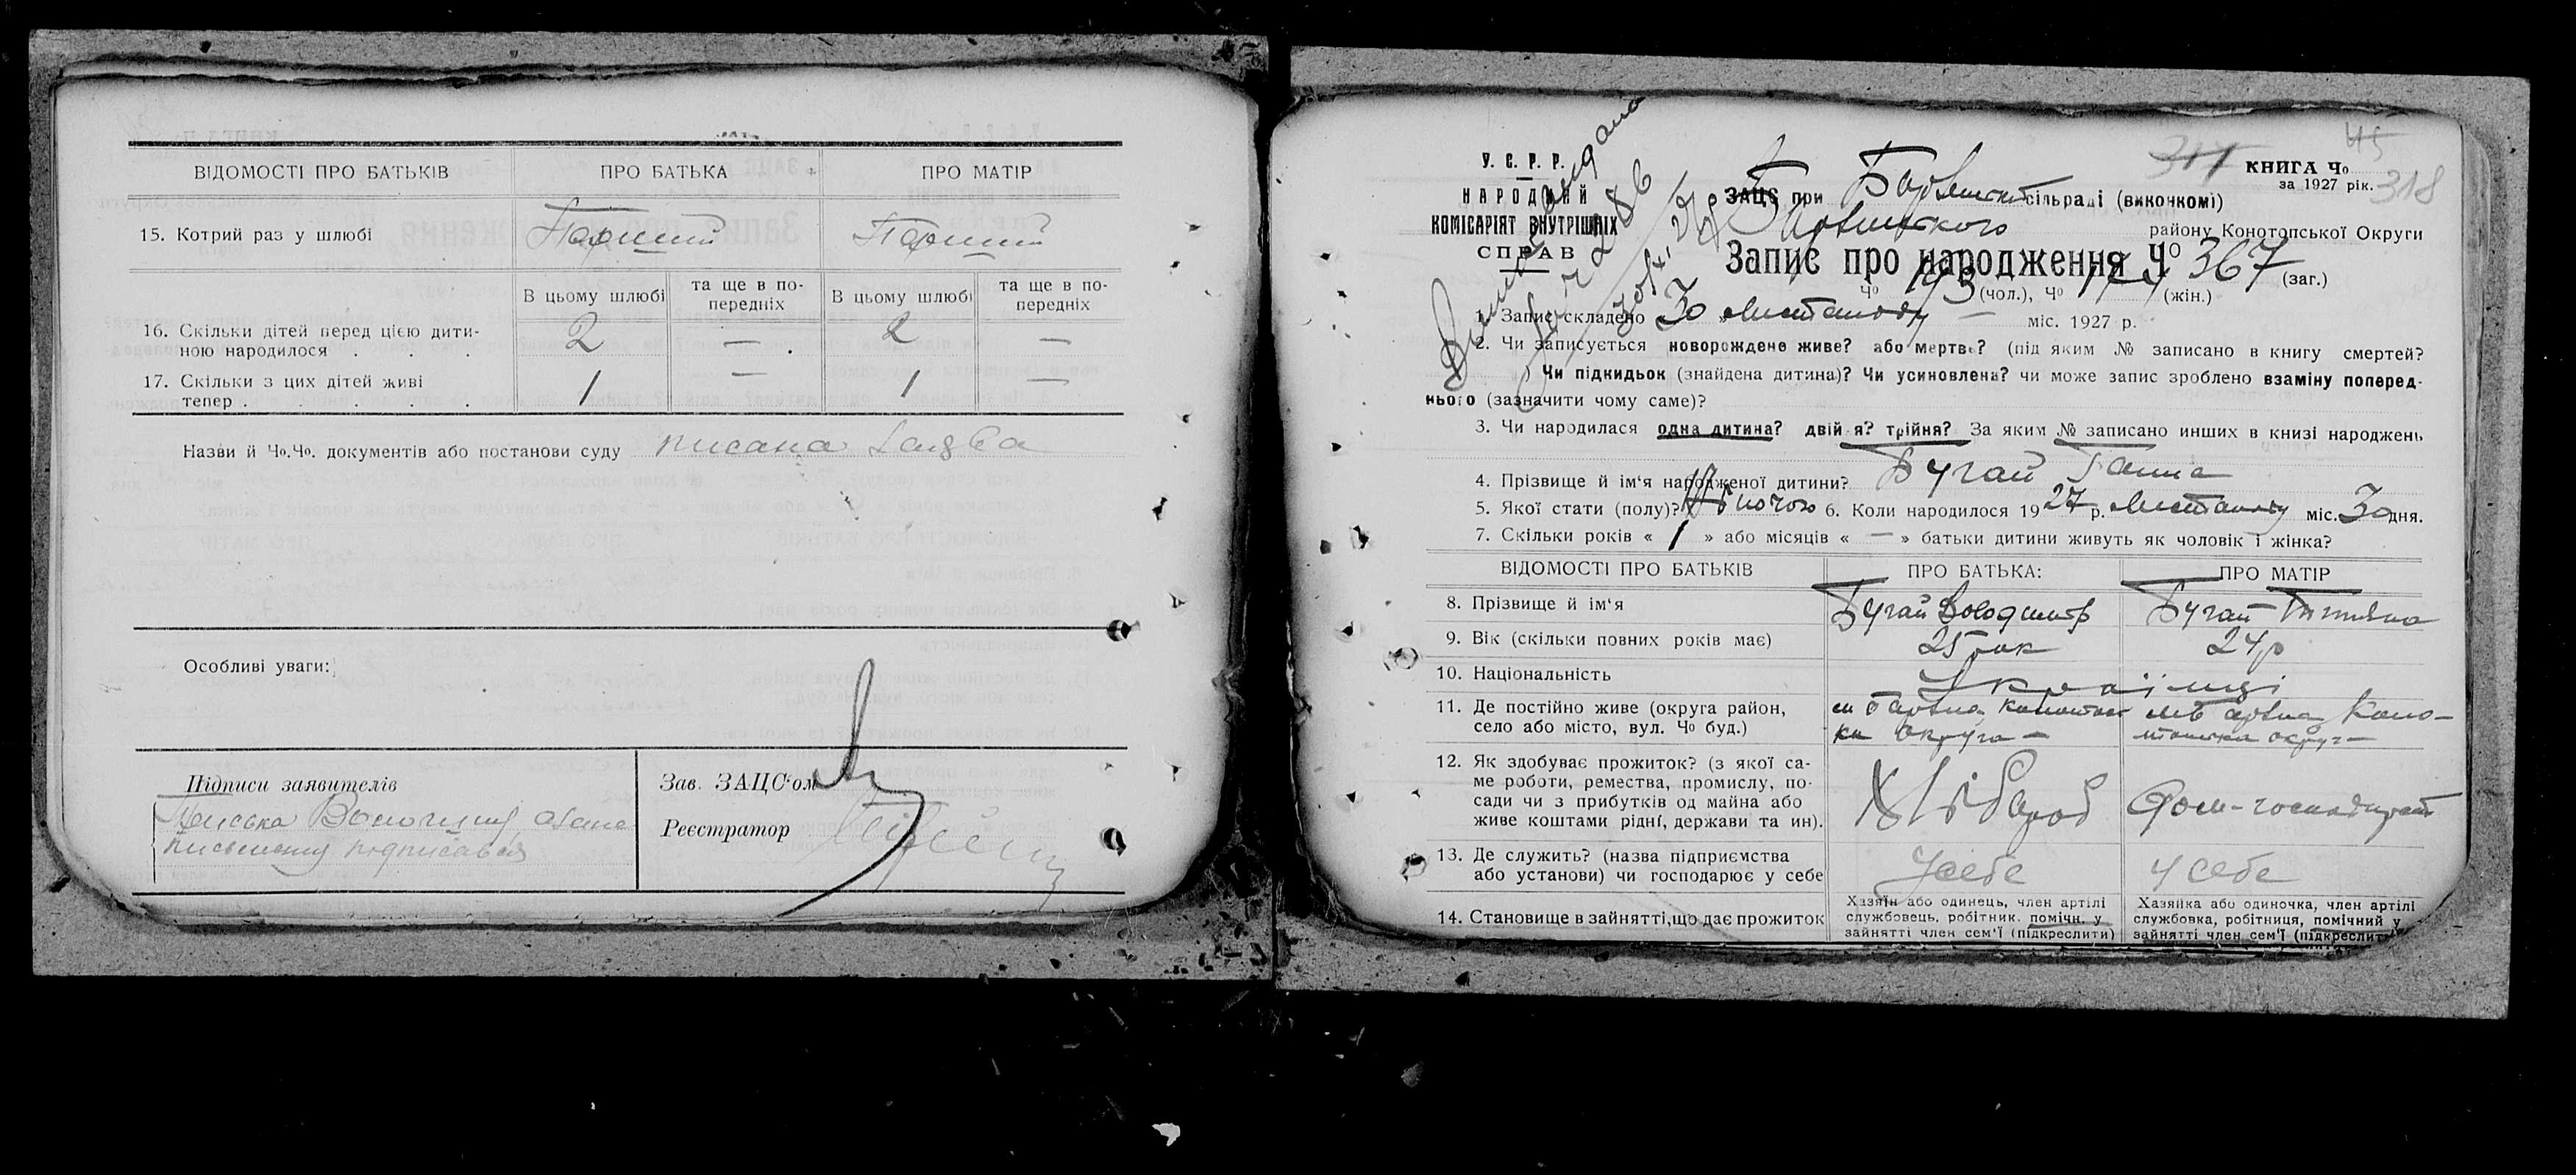 ВІДОМОСТІ ПРО БАТЬКІВ ПРО БАТЬКА ПРО МАТІР
15. Котрий раз у шлюбі Перший Перший
В цьому шлюбі та ще в по-передніх В цьому шлюбі та ще в по-передніх
16. Скільки дітей перед цією дити-
ною народилося . . . 2 — 2 —
17. Скільки з цих дітей живі
тепер . . . . . 1 — 1 —
Назви й Чо.Чо. документів або постанови суду писана
Особливі уваги:
Підписи заявителів
Зав. ЗАЦС'ом
Реєстратор
45
317
У. С. Р. Р.
НАРОДНИЙ
КОМІСАРІЯТ ВНУТРІШНІХ
СПРАВ
КНИГА Чо
за 1927 рік. 318
ЗАЦС при сільраді (виконкомі)
району Конотопської Округи
Запис про народження Чо 367 (заг.)
Чо 193 (чол.), Чо 174 (жін.)
1. Запис складено 30 » Листопаду — міс. 1927 р.
2. Чи записується новорождене живе? або мертве? (під яким № записано в книгу смертей?
) Чи підкидьок (знайдена дитина)? Чи усиновлена? чи може запис зроблено взаміну поперед-
нього (зазначити чому саме)?
3. Чи народилася одна дитина? двійня? трійня? За яким № записано инших в книзі народжень
4. Прізвище й ім'я народженої дитини? Бугай Ганна
5. Якої стати (полу)? Жіночої 6. Коли народилося 1927 р. Листопаду міс. 30 дня.
7. Скільки років « 1 » або місяців « — » батьки дитини живуть як чоловік і жінка?
ВІДОМОСТІ ПРО БАТЬКІВ ПРО БАТЬКА: ПРО МАТІР
8. Прізвище й ім'я Бугай Володимир Бугай Титяна
9. Вік (скільки повних років має) 25 рок 24 р
10. Національність Українці
11. Де постійно живе (округа район,
село або місто, вул. Чо буд.)
12. Як здобуває прожиток? (з якої са-
ме роботи, ремества, промислу, по-
сади чи з прибутків од майна або
живе коштами рідні, держави та ин). Хлібороб
13. Де служить? (назва підприємства
або установи) чи господарює у себе у себе у себе
14. Становище в зайнятті, що дає прожиток
Хазяїн або одинець, член артілі
службовець, робітник, помічн. у
зайнятті член сем'ї (підкреслити)
Хазяйка або одиночка, член артілі
службовка, робітниця, помічний у
зайнятті член сем'ї (підкреслити)